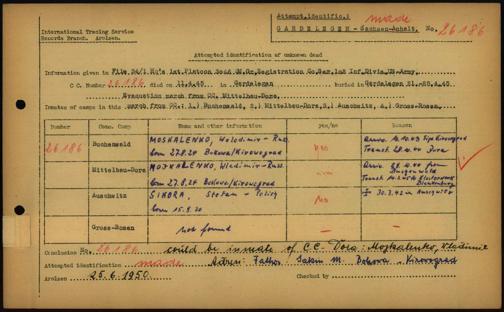 International Tracing Service
Records Branch. Arolsen.
Attempt.identific.: made
GARDELEGEN - Sachsen-Anhalt. No. 26186
Attempted identification of unknown dead
Information given in File 84/1 Hq's 1st Platoon 3046 QM.Gr.Registration Co.Ser.1st Inf.Divis.US.Army.
C C Number 26186 died on 13.4.45 in Gardelegen buried in Gardelegen 21.-25.4.45
Evacuation march from CC. Mittelbau-Dora.
Inmates of camps in this march from CC. 1.) Buchenwald, 2.) Mittelbau-Dora, 3.) Auschwitz, 4.) Gross-Rosen.
Number Conc. Camp Name and other information yes/no remarks
26186 Buchenwald MOSKALENKO, Wolodimir - Russ. born 27.8.24 Bokowa/Kirowograd
Mittelbau-Dora MOJKALENKO, Wladimir - Russ born 27.8.24 Bokowa/Kirowograd
Auschwitz SIKORA, Stefan - Polish born 15.9.20 no 30.3.42 in Auschwitz
Gross-Rosen not found —
Conclusion No. 26186 could be inmate of C.C. Dora: Mojkalenko, Wladimir
Attempted identification made Adress: Father: M. Bokowa, Kirowograd
Arolsen 25.6.1950 Checked by